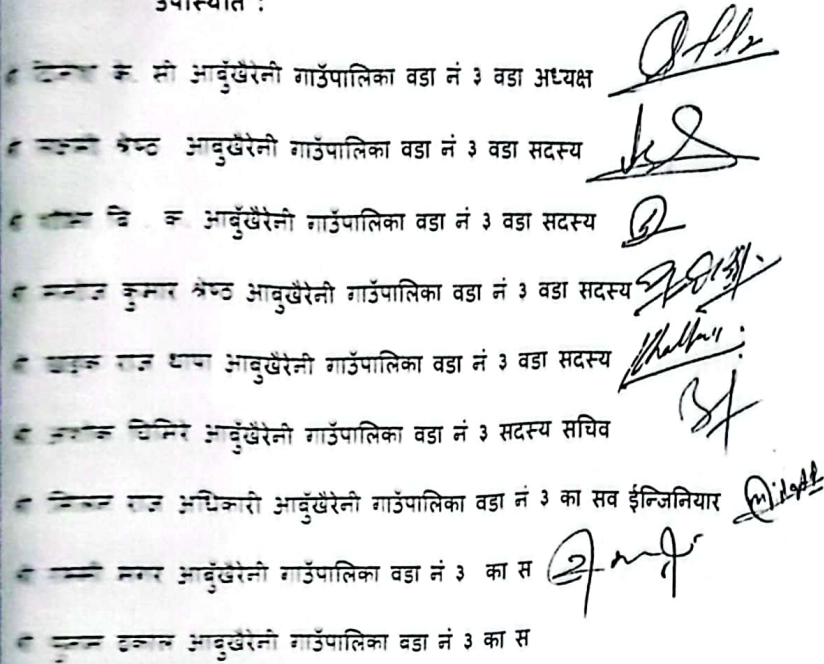 उपस्थिति :
के. सी आबुँखैरेनी गाउँपालिका वडा नं ३ वडा अध्यक्ष
श्रेष्ठ आबुखैरेनी गाउँपालिका वडा नं ३ वडा सदस्य
वि . क आबुँखैरेनी गाउँपालिका वडा नं ३ वडा सदस्य
मनोज कुमार श्रेष्ठ आबुखैरेनी गाउँपालिका वडा नं ३ वडा सदस्य
राज थापा आबुखैरेनी गाउँपालिका वडा नं ३ वडा सदस्य
घिमिरे आबुँखैरेनी गाउँपालिका वडा नं ३ सदस्य सचिव
राज अधिकारी आबुँखैरेनी गाउँपालिका वडा नं ३ का सव ईन्जिनियार
मगर आबुँखैरेनी गाउँपालिका वडा नं ३ का स
ढकाल आबुखैरेनी गाउँपालिका वडा नं ३ का स